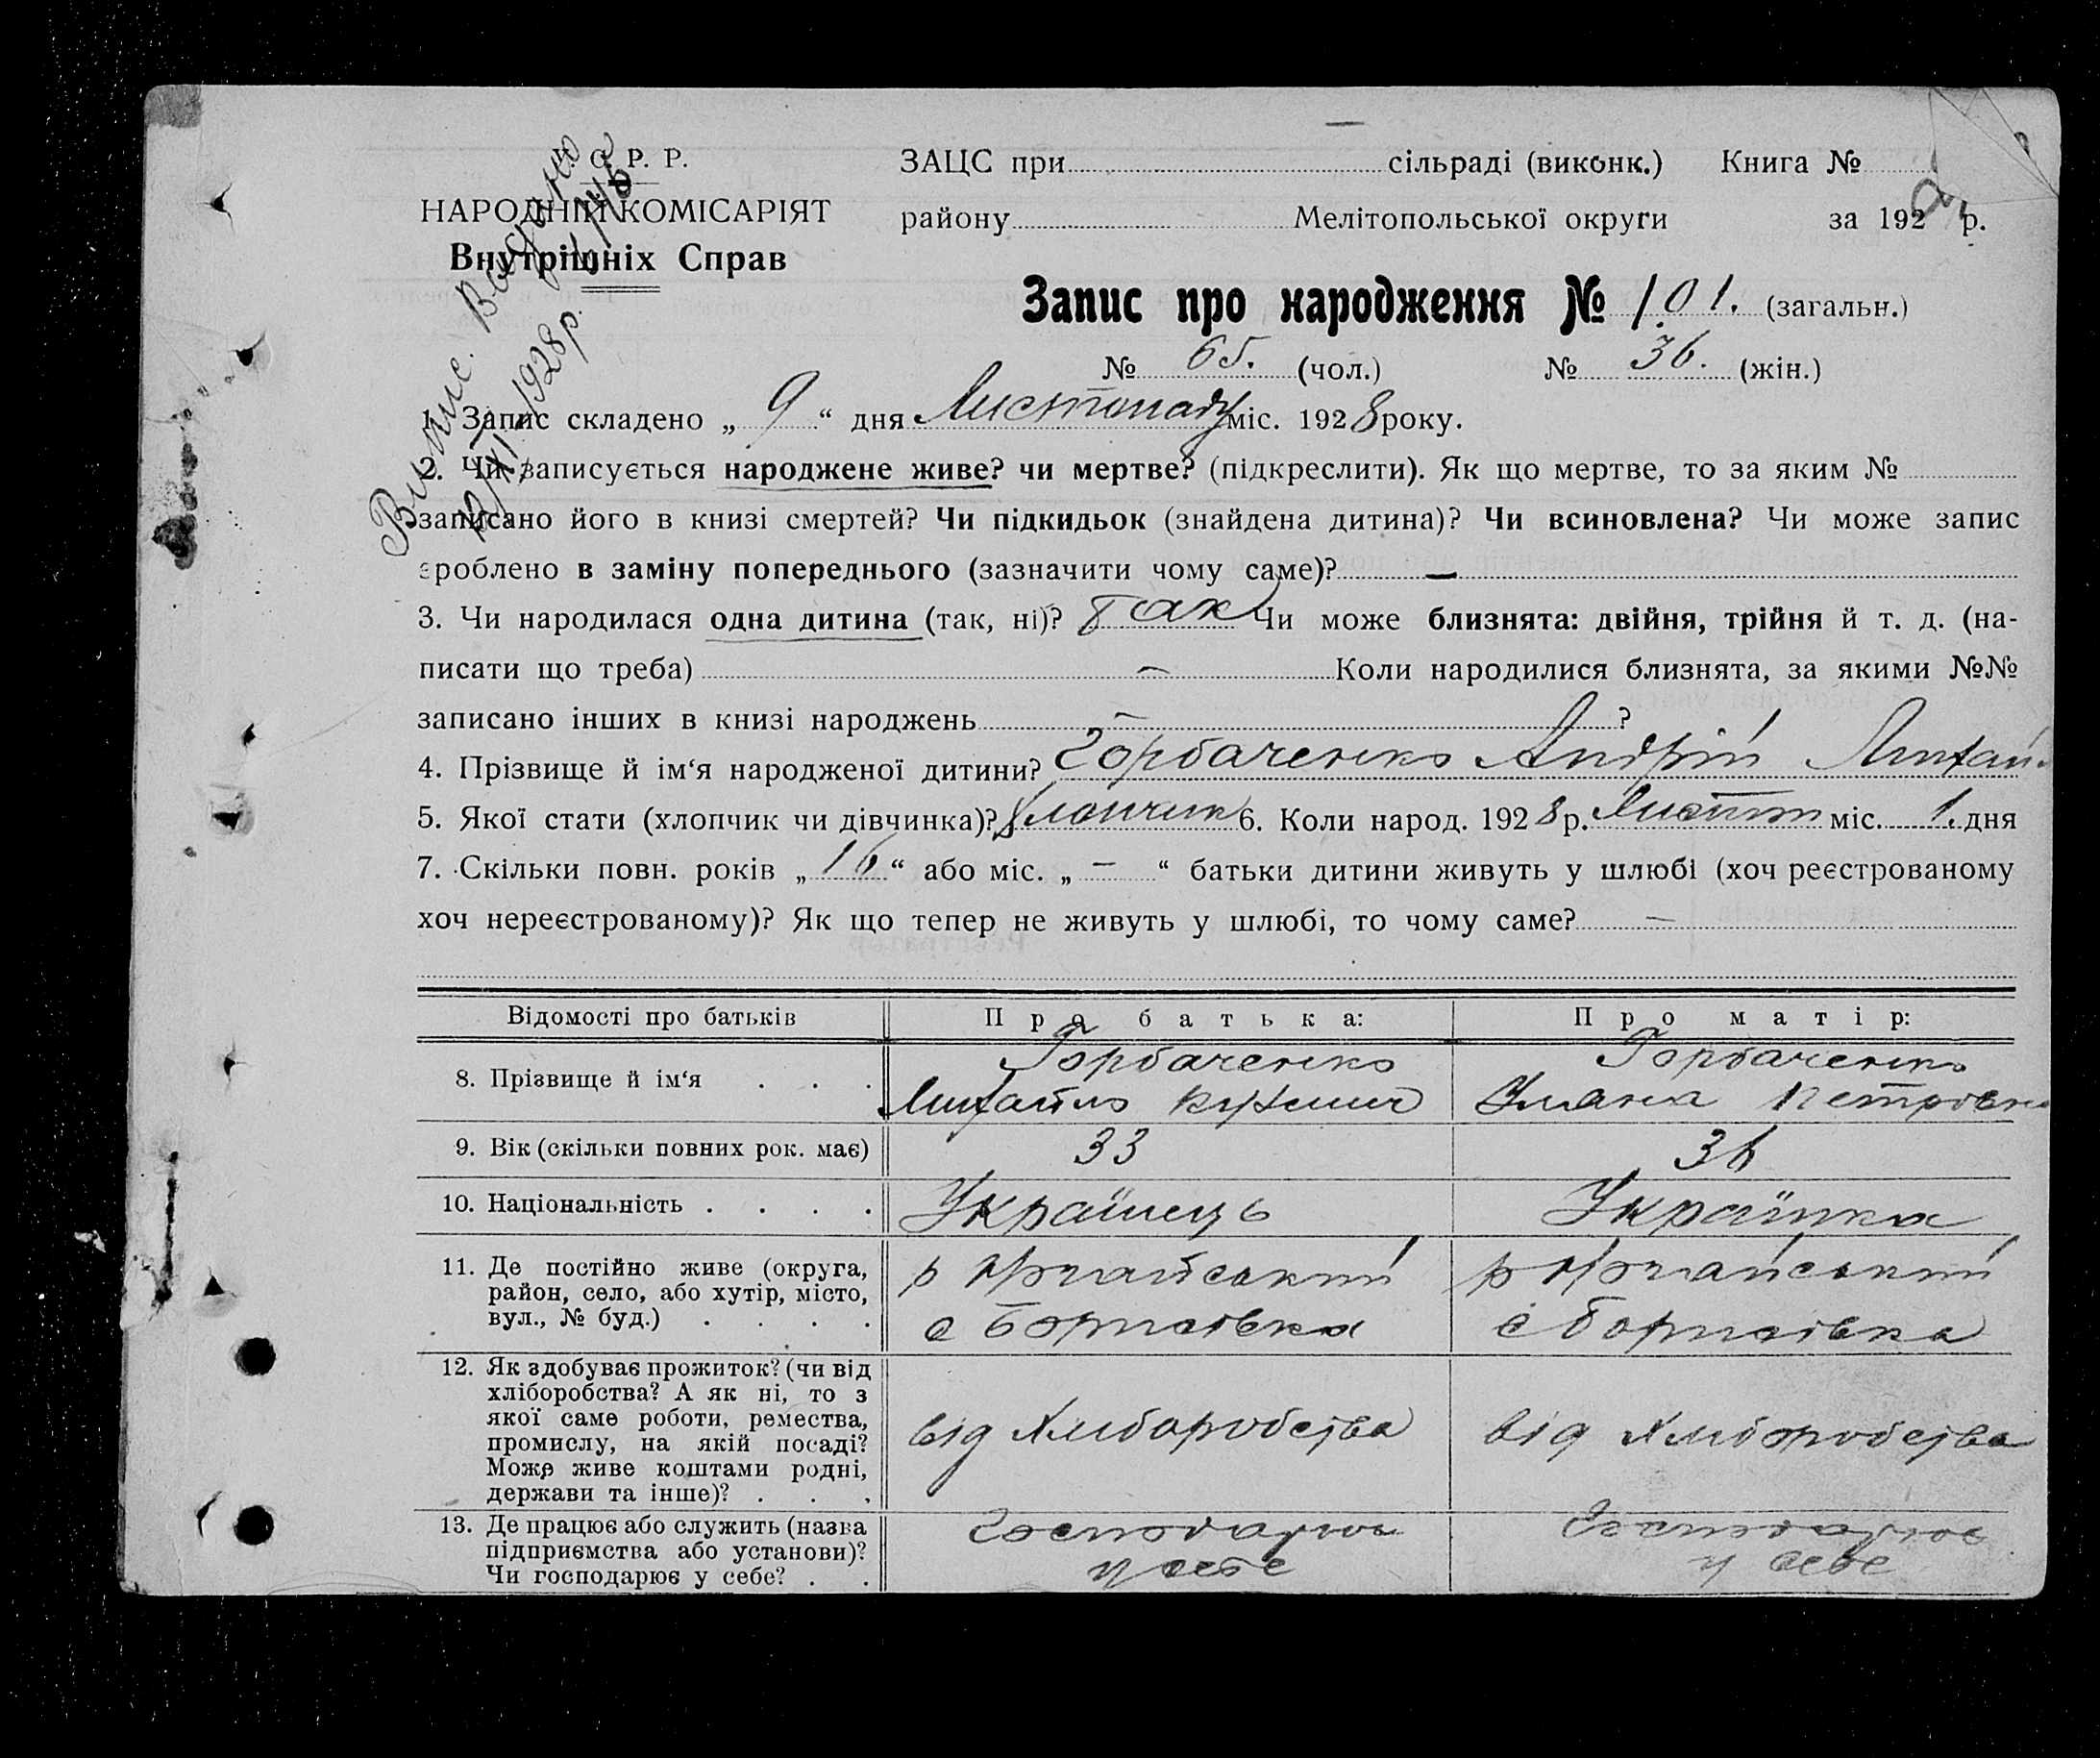 С. Р. Р.
НАРОДНІЙ КОМІСАРІЯТ
Внутрішніх Справ
Випис. Видано
12/XI 1928 р.
ЗАЦС при сільраді (виконк.) Книга №
району Мелітопольської округи за 192 р.
Запис про народження № 101. (загальн.)
№ 65. (чол.) № 36. (жін.)
1. Запис складено „ 9 “ дня Листопаду міс. 1928 року.
2. Чи записується народжене живе? чи мертве? (підкреслити). Як що мертве, то за яким №
записано його в книзі смертей? Чи підкидьок (знайдена дитина)? Чи всиновлена? Чи може запис
зроблено в заміну попереднього (зазначити чому саме)? —
3. Чи народилася одна дитина (так, ні)? Так Чи може близнята: двійня, трійня й т. д. (на-
писати що треба) — Коли народилися близнята, за якими №№
записано інших в книзі народжень — ?
4. Прізвище й ім‘я народженої дитини? Горбаченко Андрій Михай
5. Якої стати (хлопчик чи дівчинка)? Хлопчик 6. Коли народ. 1928 р. Листоп міс. 1. дня
7. Скільки повн. років „ 16 “ або міс. „ — “ батьки дитини живуть у шлюбі (хоч реєстрованому
хоч нереєстрованому)? Як що тепер не живуть у шлюбі, то чому саме? —
Відомості про батьків Про батька: Про матір:
8. Прізвище й ім‘я . . . Горбаченко Горбаченко
Михайло Уляна Петровна
9. Вік (скільки повних рок. має) 33 36
10. Національність . . . . Українець Українка
11. Де постійно живе (округа,
район, село, або хутір, місто,
вул., № буд.) . . . .
р
с
р
с
12. Як здобуває прожиток? (чи від
хліборобства? А як ні, то з
якої саме роботи, ремества,
промислу, на якій посаді?
Може живе коштами родні,
держави та інше)? . . .
від Хліборобства від Хліборобства
13. Де працює або служить (назва
підприємства або установи)?
Чи господарює у себе? . .
Господарює
у себе
Господарює
у себе